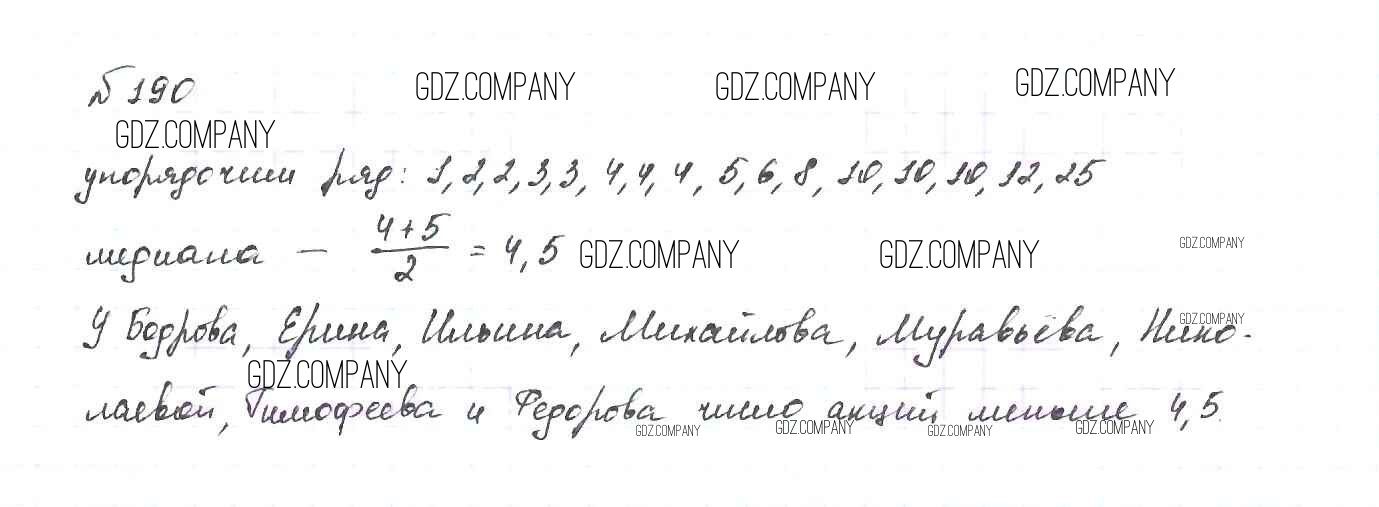 №190 GDZ.COMPANY GDZ.COMPANY GDZ.COMPANY
GDZ.COMPANY
упорядочим ряд: 1, 2, 2, 3, 3, 4, 4, 4, 5, 6, 8, 10, 10, 10, 12, 25
медиана — (4+5)/2 = 4,5 GDZ.COMPANY GDZ.COMPANY GDZ.COMPANY
У Бодрова, Ерина, Ильина, Михайлова, Муравьёва, Нико-
GDZ.COMPANY
GDZ.COMPANY
лаевой, Тимофеева и Федорова число акций меньше 4,5.
GDZ.COMPANY GDZ.COMPANY GDZ.COMPANY GDZ.COMPANY